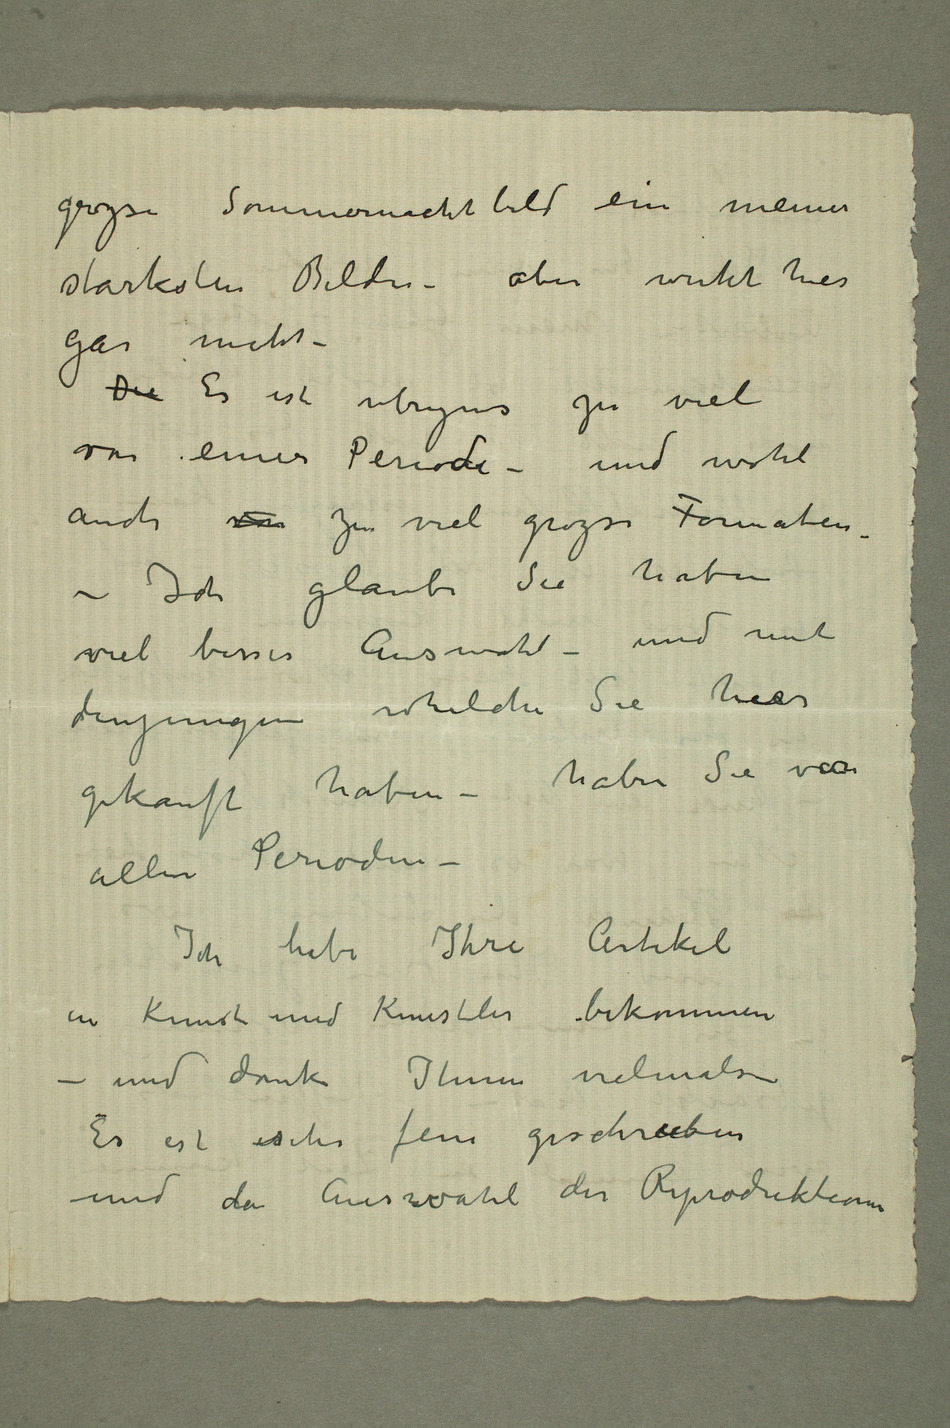 grozse Sommernacht bild ein meiner
starksten Bilder – aber wirkt hier
gar nicht –
Die Es ist ubrigens zu viel
von einer Periode – und wohl
auch von zu viel grozse Formaten –
– Ich glaube Sie haben
viel besser Auswahl – und mit
denjenigen whelche Sie hier
gekauft haben – haben Sie von
allen Perioden –
Ich habe Ihre Artikel
in Kunst und Kunstler bekommen
– und danke Ihnen vielmals –
Es ist sehr fein geschrieben
und die Auswahl der Reproduktionen